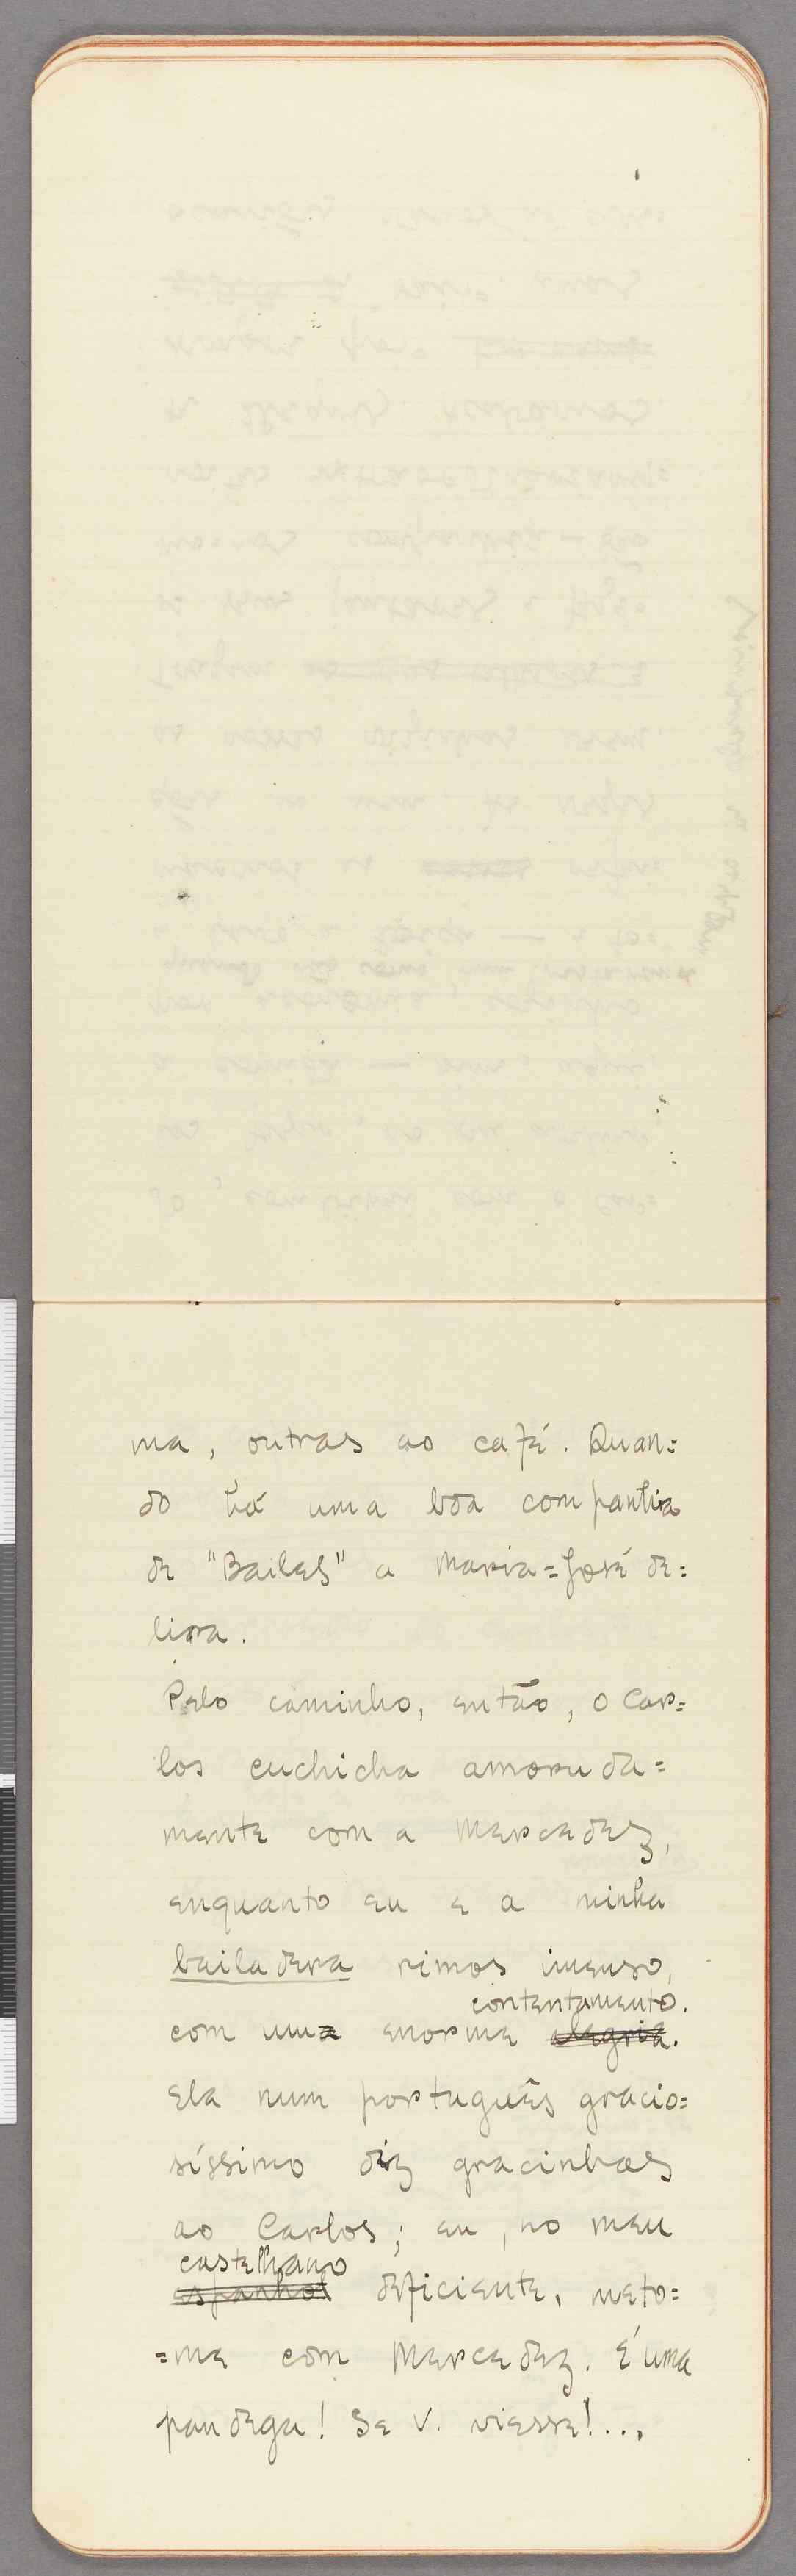 ma, outras ao café. Quan=
do há uma bôa companhia
de "Bailes" a Maria=José de=
lira.
Pelo caminho, então, o Car=
los cuchicha amoruda=
mente com a Mercedez,
enquanto eu e a minha
bailadera rimos imenso,
contentamento.
com uma enorme alegria.
Ela num português gracio=
síssimo diz gracinhas
ao Carlos; eu, no meu
castelhano
espanhol deficiente, meto=
=me com Mercedez. É uma
pandega! Se V. viesse!...